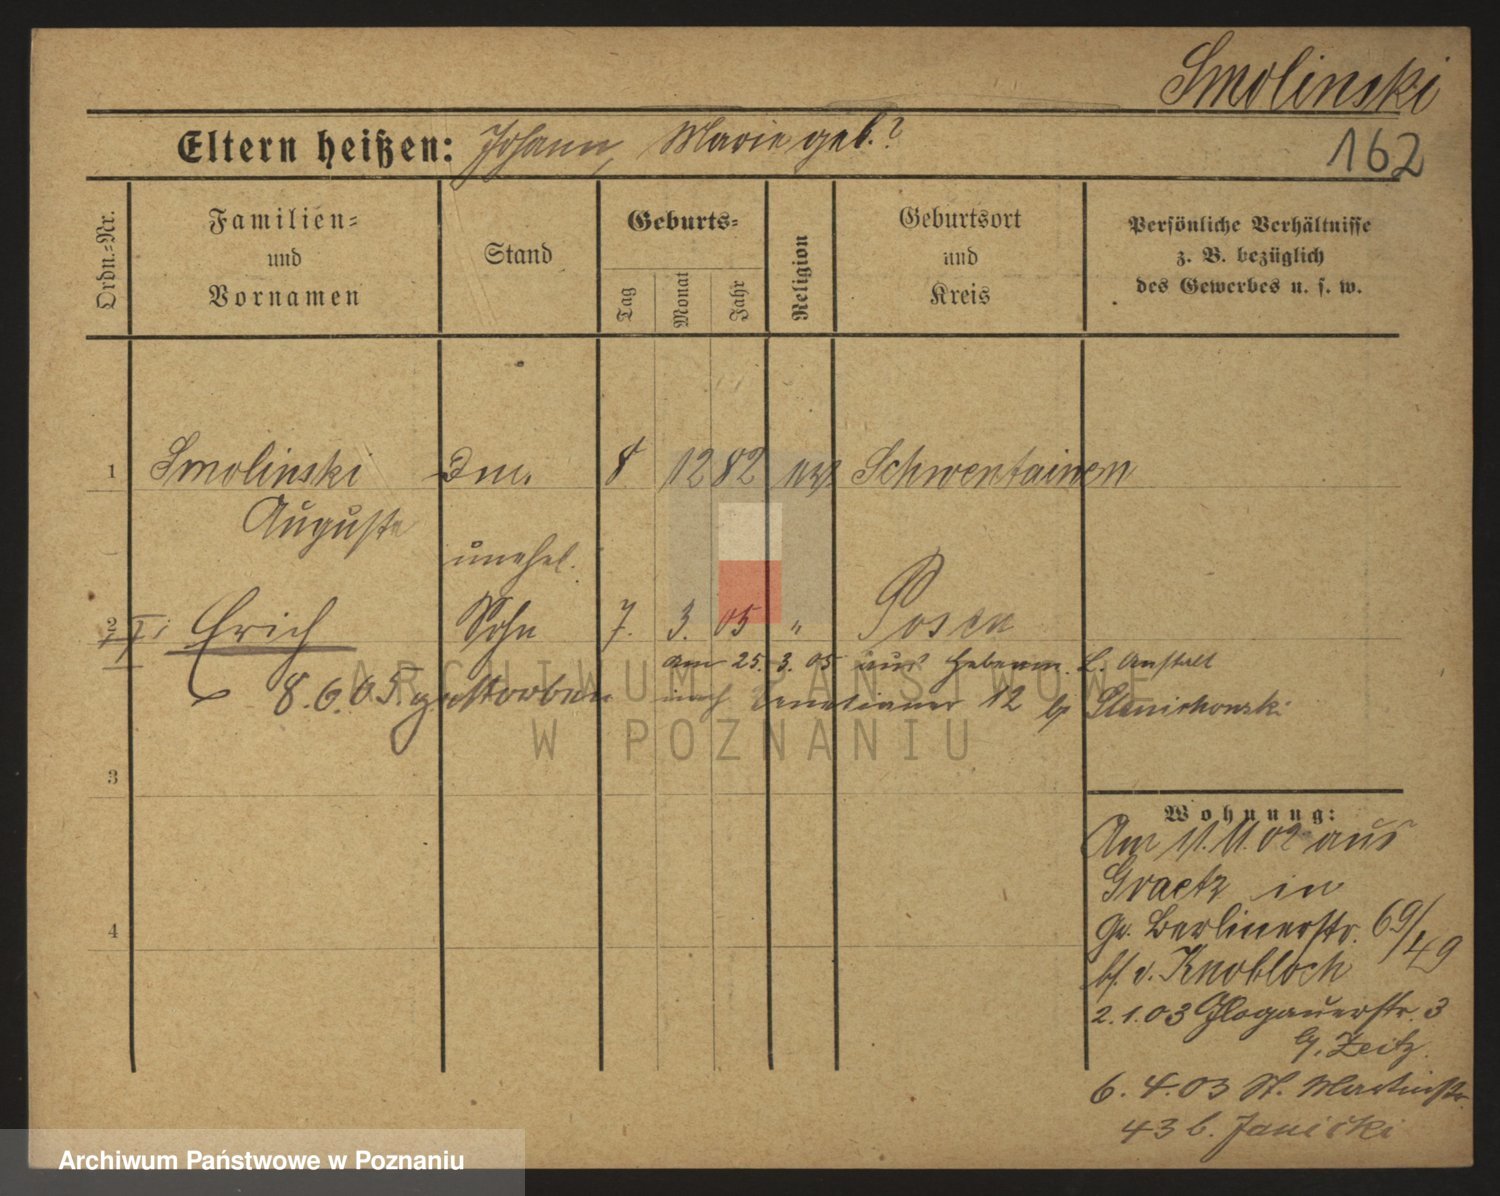 Smolinski
162
Eltern heißen: Johann, Marie geb. ?
Ordn.-Nr.
Familien-
und
Vornamen
Stand
Geburts-
Tag
Monat
Jahr
Religion
Geburtsort
und
Kreis
Persönliche Verhältnisse
z. B. bezüglich
des Gewerbes u. s. w.
1 Smolinski 8 12 82 Schwentainen
Auguste
unehel.
2 Erich Sohn 7. 3. 05 " Posen
am 25. 3. 05 aus Hebamm. L. Anstalt
8.6.05 gestorben nach Venetianer 12
3
4
Wohnung:
Am 11.11.02 aus
Graetz in
Gr. Berlinerstr. 69/49
bf. v. Knobloch
2.1.03 Glogauerstr. 3
b. Zeitz.
6. 4. 03 St. Martinstr.
43 b. Janicki
ARCHIWUM PAŃSTWOWE
W POZNANIU
Archiwum Państwowe w Poznaniu